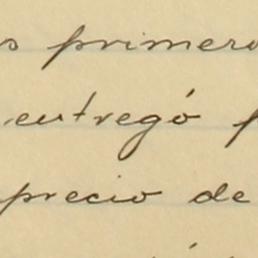 s primero
entregó p
precio de